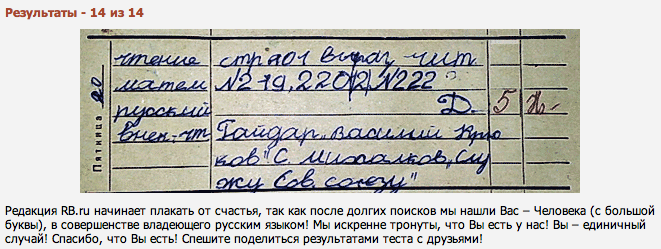 Результаты - 14 из 14
чтение стр 201 выраз. чит.
матем №219, 220(2) №222
русский Д. 5
внен. чт. Гайдар „Василий Крю
ков" С. Михалков „Слу
жу Сов. союзу"
Пятница
Редакция RB.ru начинает плакать от счастья, так как после долгих поисков мы нашли Вас – Человека (с большой
буквы), в совершенстве владеющего русским языком! Мы искренне тронуты, что Вы есть у нас! Вы – единичный
случай! Спасибо, что Вы есть! Спешите поделиться результатами теста с друзьями!